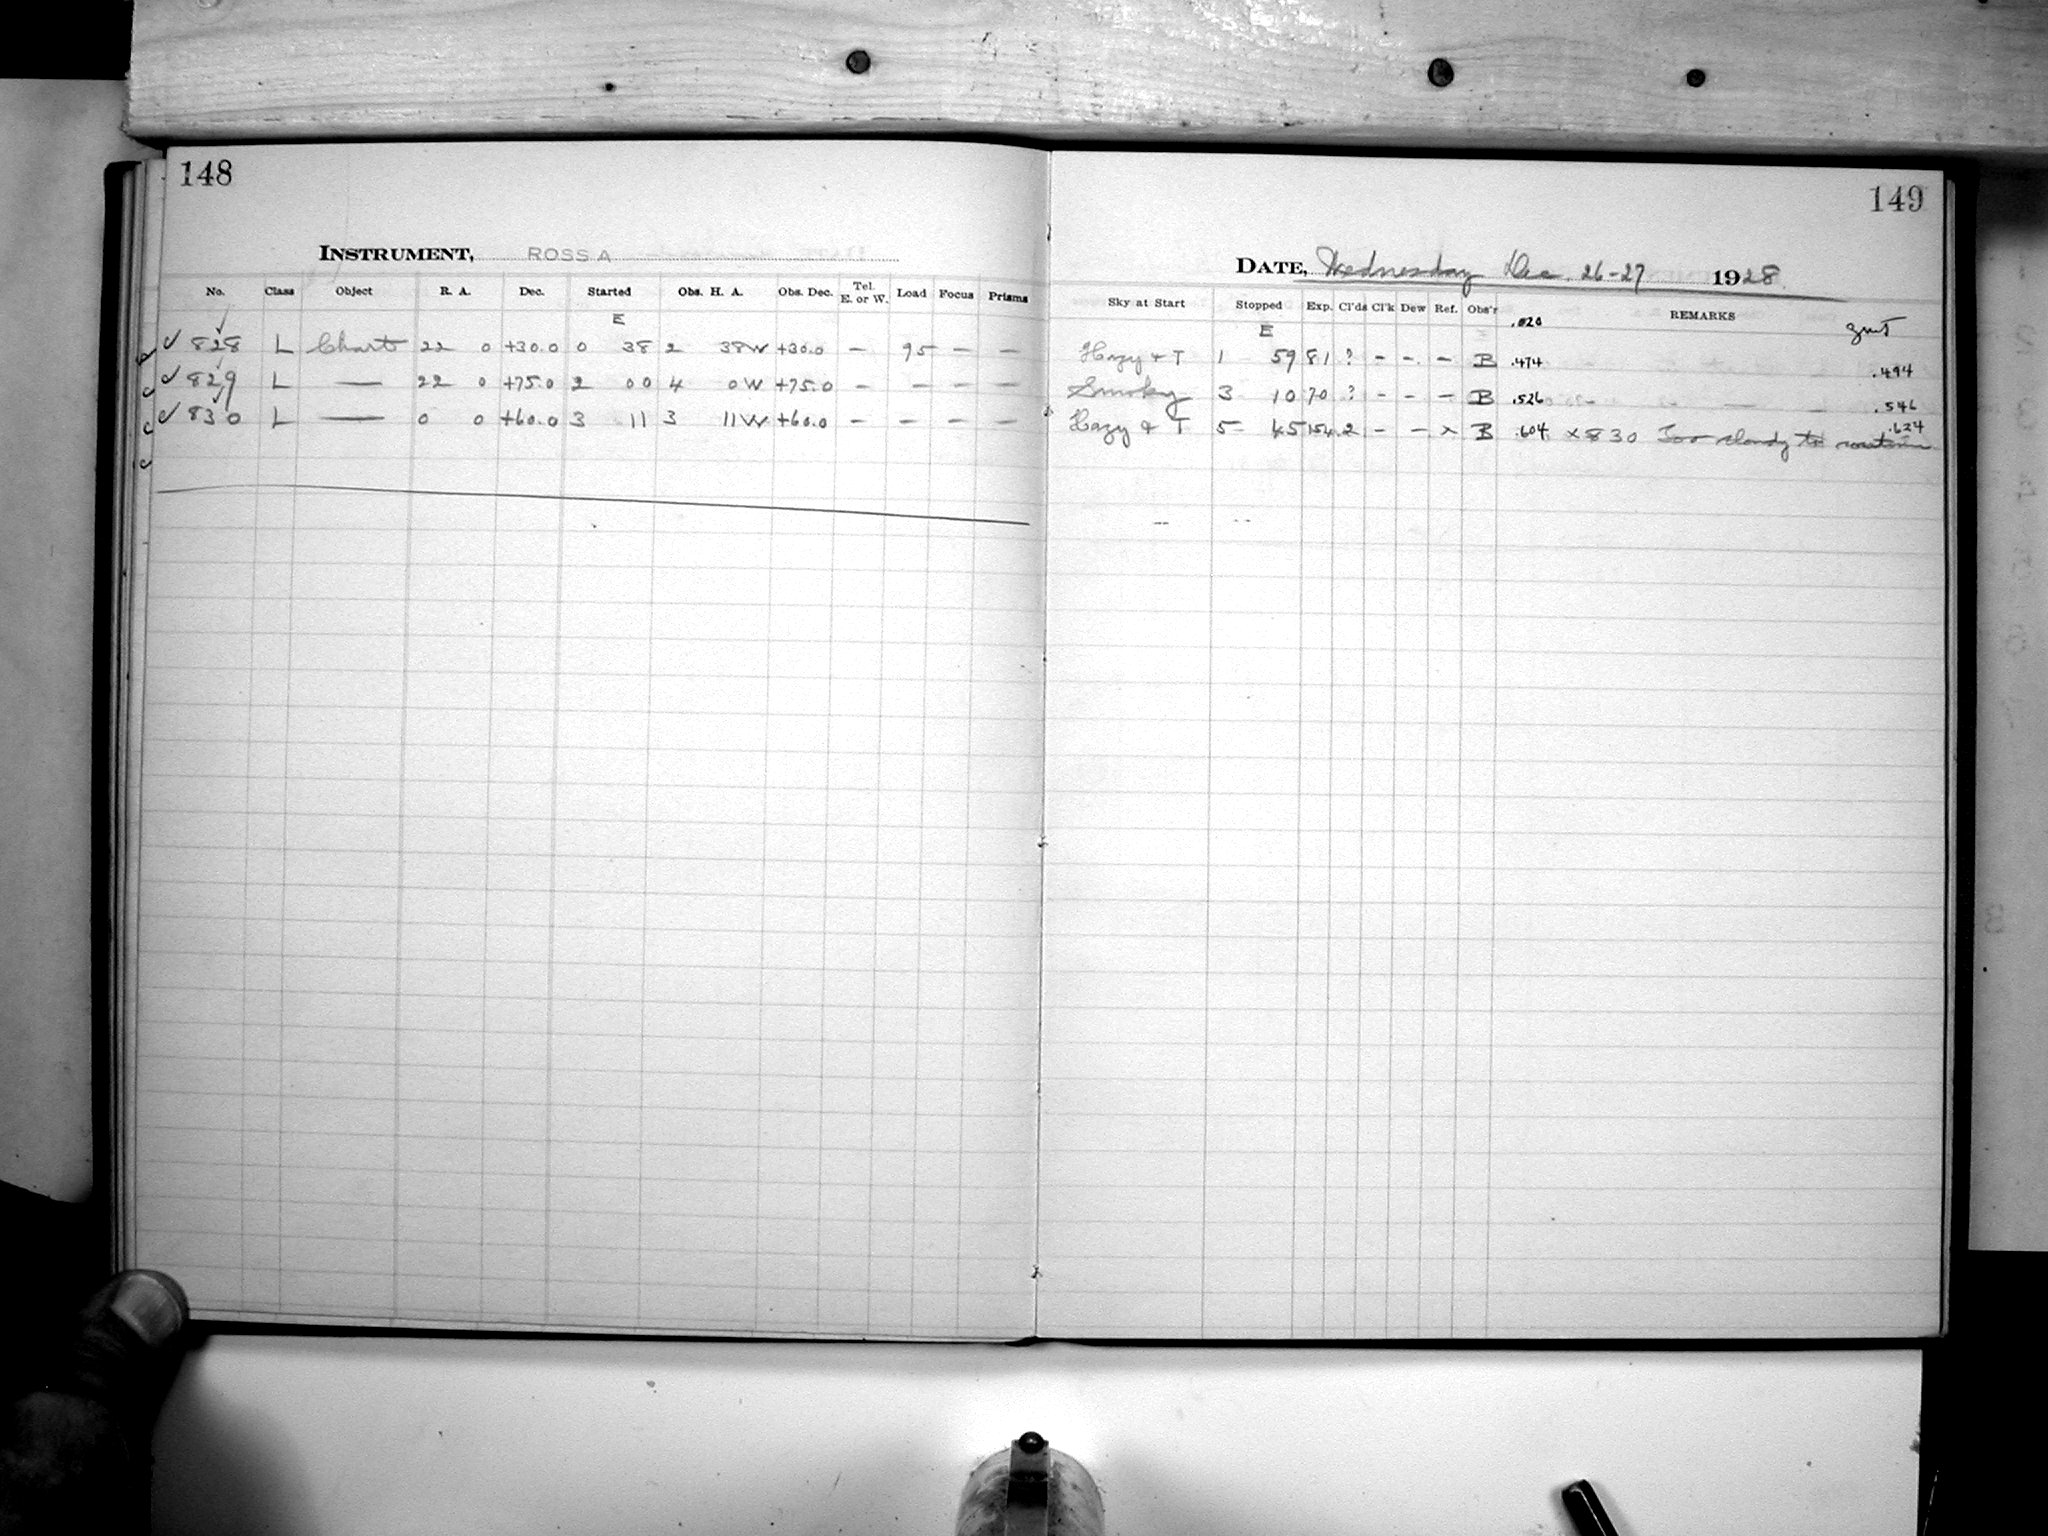 148
INSTRUMENT, ROSS A
No. Class Object R. A. Dec. Started Obs. H. A. Obs. Dec. Tel. E. or W. Load Focus Prisms
E
✓ 828 L Chart 22 0 +30.0 0 38 2 38W +30.0 — 95 — —
✓ 829 L — 22 0 +75.0 2 00 4 0W +75.0 — — — —
✓ 830 L — 0 0 +60.0 3 11 3 11W +60.0 — — — —
149
DATE, Wednesday Dec. 26-27 1928
Sky at Start Stopped Exp. Cl'ds Cl'k Dew Ref. Obs'r REMARKS
E .020 GMT
Hazy & T 1 59 81 ? - - - B .474 .494
Smoky 3 10 70 ? - - - B .526 .546
Hazy & T 5 45 154 2 - - x B .604 x830 Too cloudy to continue .624